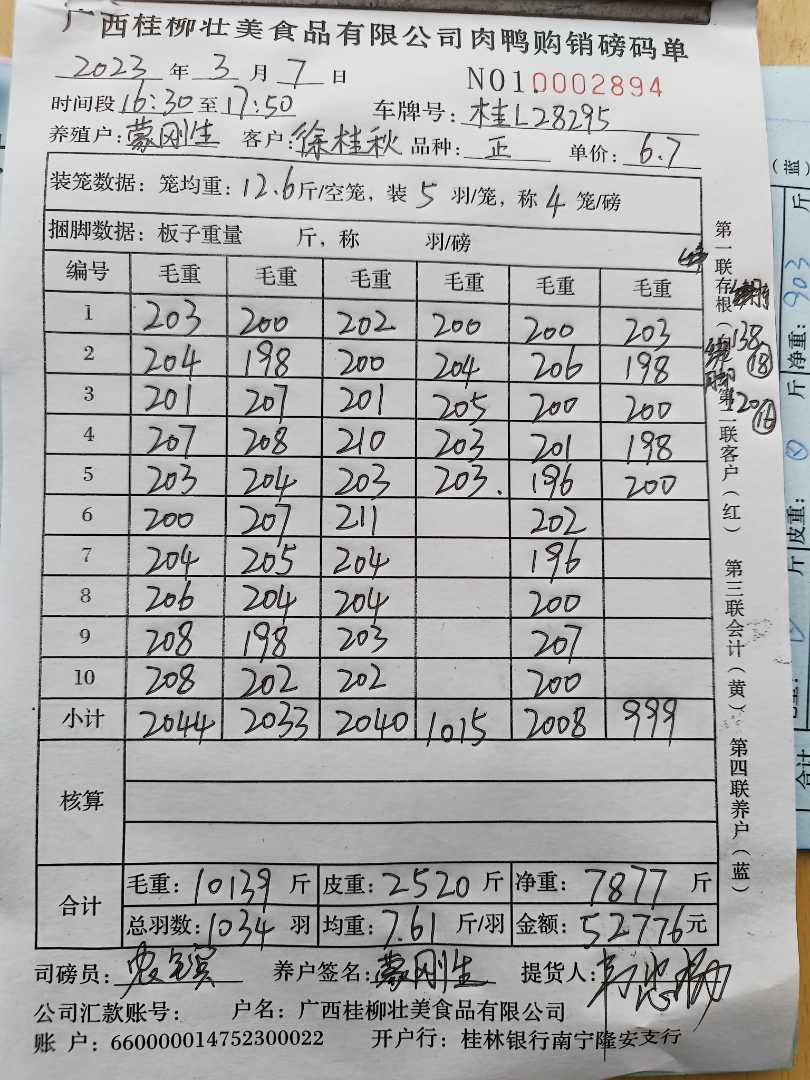 广西桂柳壮美食品有限公司肉鸭购销磅码单
2023 年 3 月 7 日 NO1.0002894
时间段 16:30 至 17:50 车牌号: 桂L28295
养殖户: 蒙刚生 客户: 徐桂秋 品种: 正 单价: 6.7
装笼数据: 笼均重: 12.6 斤/空笼, 装 5 羽/笼, 称 4 笼/磅
捆脚数据: 板子重量 斤, 称 羽/磅
编号 毛重 毛重 毛重 毛重 毛重 毛重
1 203 200 202 200 200 203
2 204 198 200 204 206 198
3 201 207 201 205 200 200
4 207 208 210 203 201 198
5 203 204 203 203. 196 200
6 200 207 211 202
7 204 205 204 196
8 206 204 204 200
9 208 198 203 207
10 208 202 202 200
小计 2044 2033 2040 1015 2008 999
核算
合计 毛重: 10139 斤 皮重: 2520 斤 净重: 7877 斤
总羽数: 1034 羽 均重: 7.61 斤/羽 金额: 52776 元
司磅员: 养户签名: 蒙刚生 提货人:
公司汇款账号: 户名: 广西桂柳壮美食品有限公司
账 户: 660000014752300022 开户行: 桂林银行南宁隆安支行
第一联存根( 第二联客户(红) 第三联会计(黄) 第四联养户(蓝)
138 18
120 16
(蓝)
斤 净重: 903 斤
斤 皮重:
合计